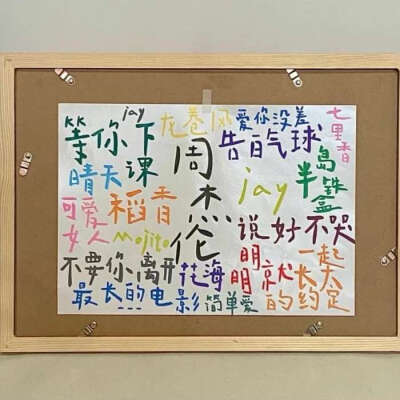 jay
龙卷风
爱你没差
七里香
等你下
课
周
杰
伦
告白气球
半岛
铁盒
晴天
稻香
jay
可爱
女人
mojito
说好不哭
明
明就
一起
长大
的约定
不要你离开
花海
最长的电影
简单爱